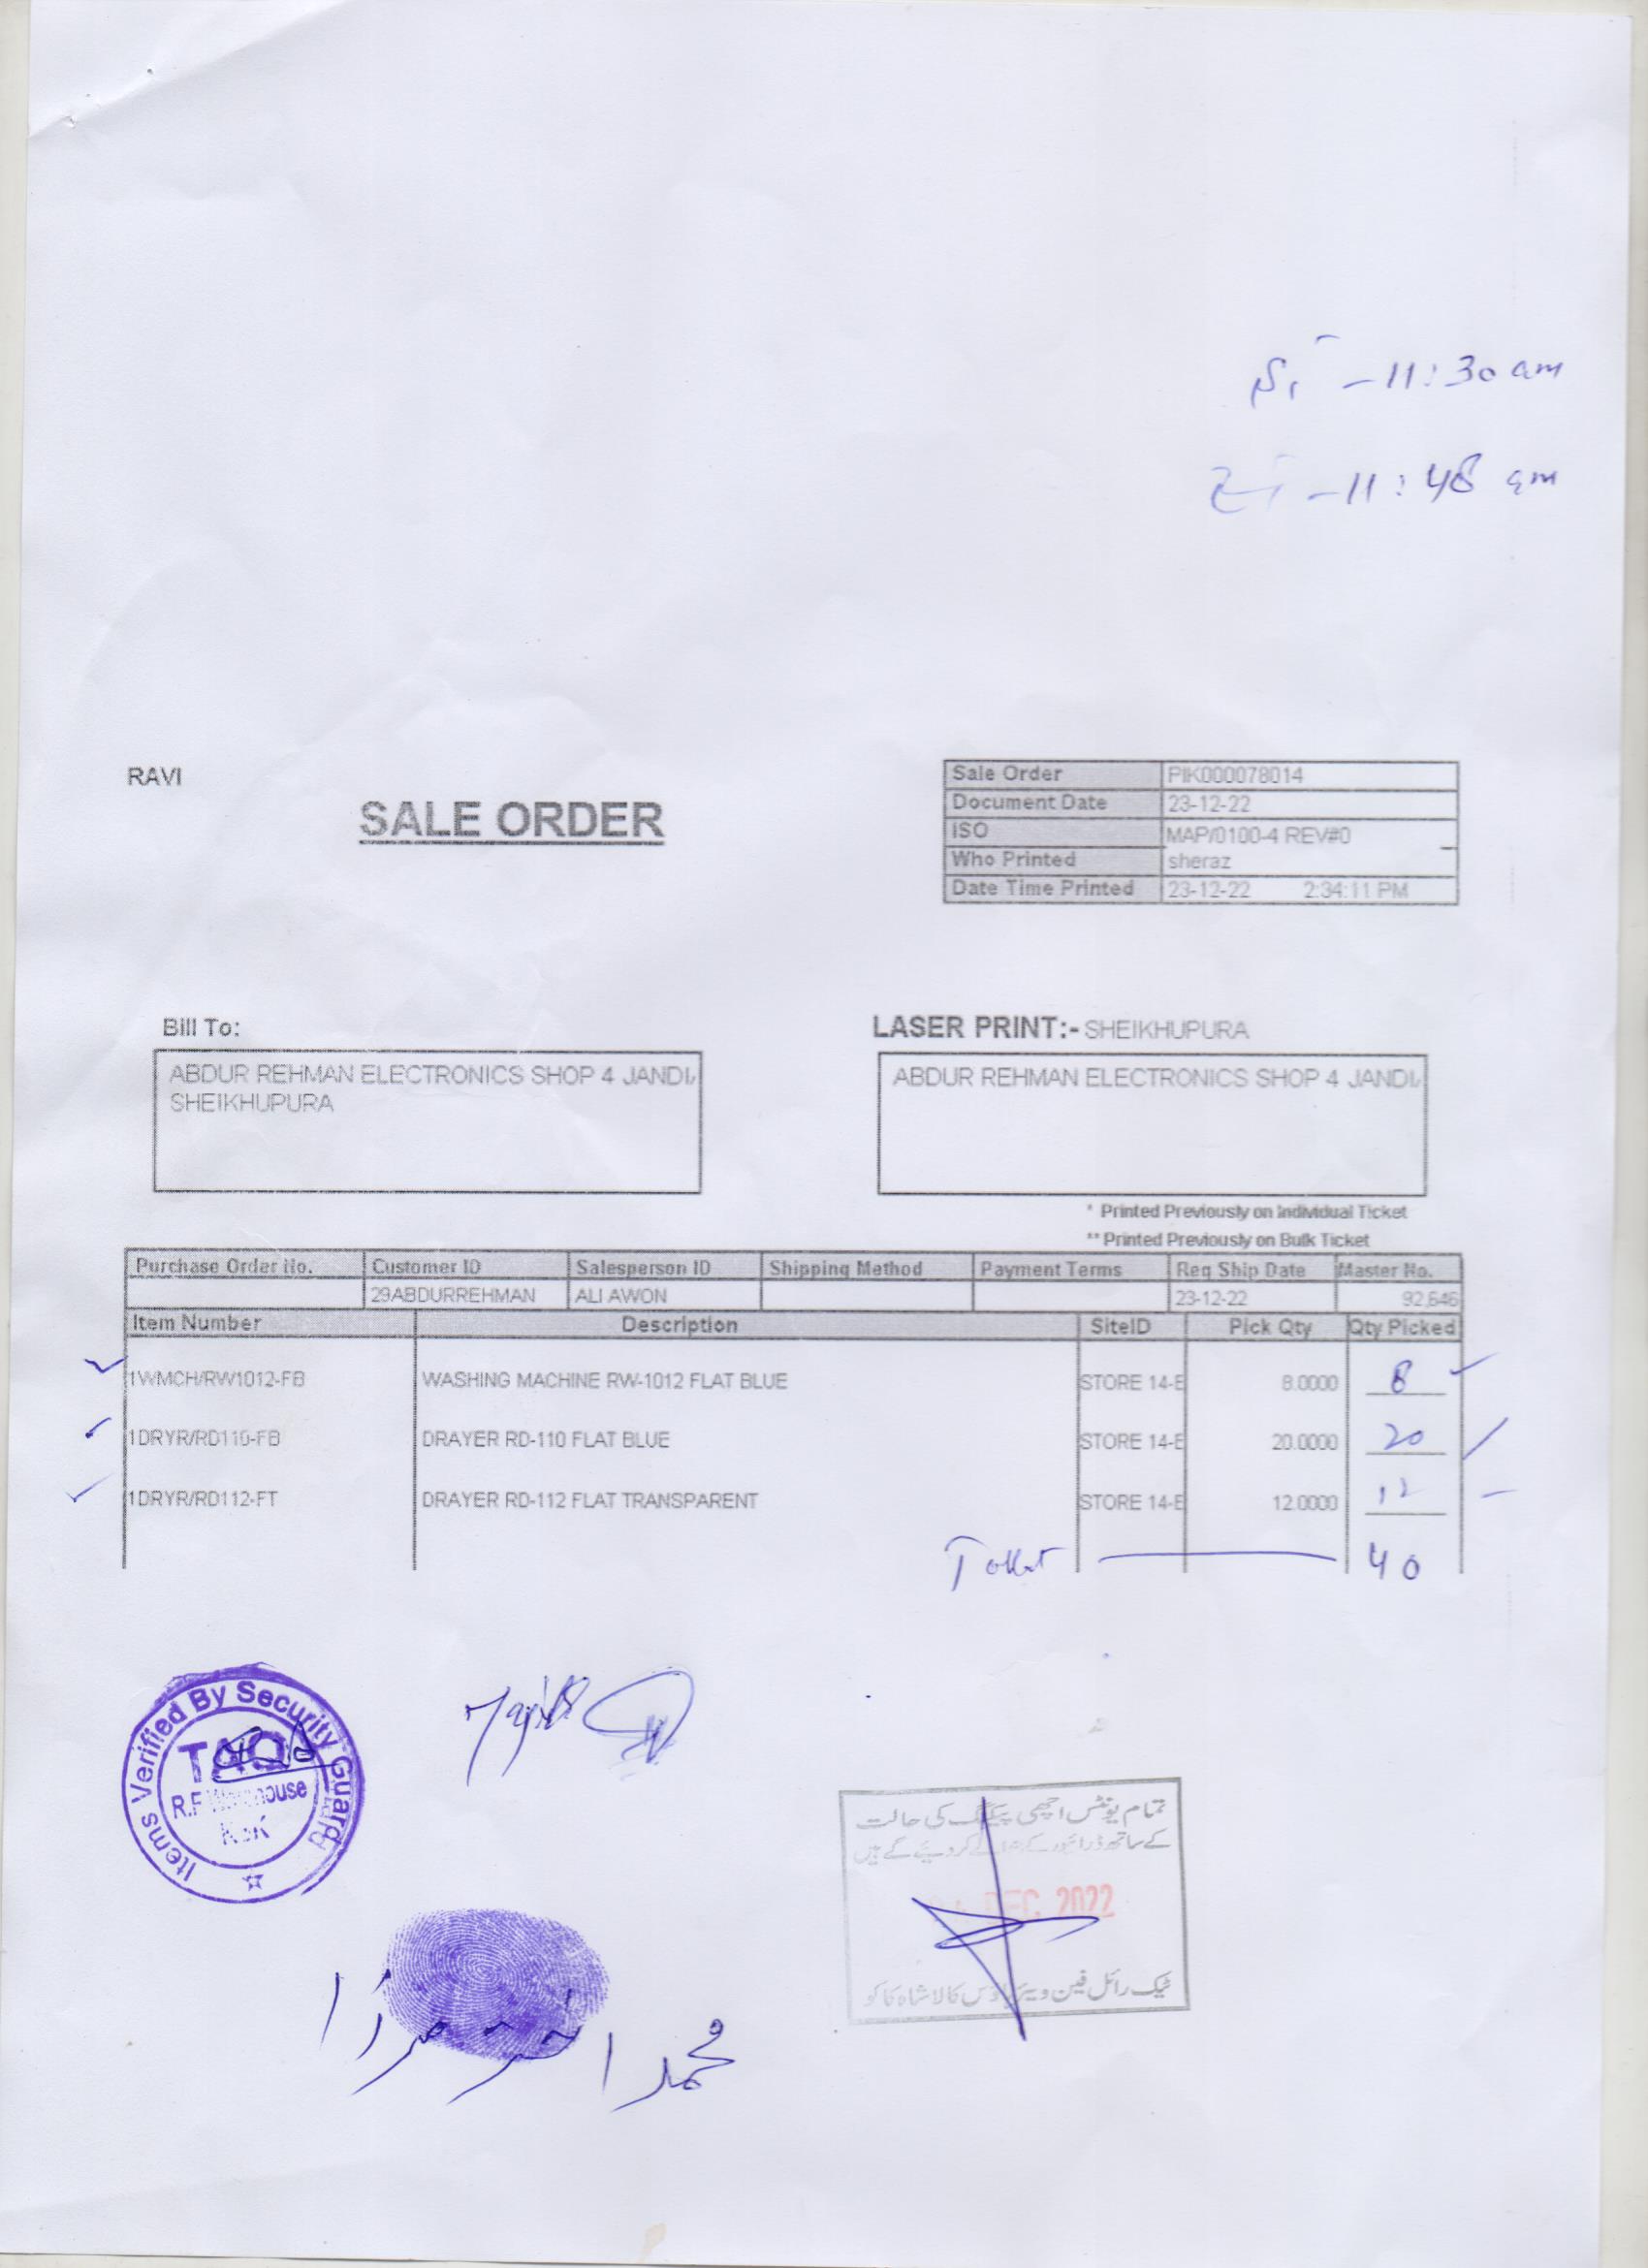 -11:30 am
-11:48 am
RAVI
SALE ORDER
Sale Order PIK000078014
Document Date 23-12-22
ISO MAP/0100-4 REV#0
Who Printed sheraz
Date Time Printed 23-12-22 2:34:11 PM
Bill To:
ABDUR REHMAN ELECTRONICS SHOP 4 JANDI
SHEIKHUPURA
LASER PRINT:- SHEIKHUPURA
ABDUR REHMAN ELECTRONICS SHOP 4 JANDI
* Printed Previously on Individual Ticket
** Printed Previously on Bulk Ticket
Purchase Order No. Customer ID Salesperson ID Shipping Method Payment Terms Req Ship Date Master No.
29ABDURREHMAN ALI AWON 23-12-22 92,646
Item Number Description SiteID Pick Qty Qty Picked
1WMCH/RW1012-FB WASHING MACHINE RW-1012 FLAT BLUE STORE 14-E 8.0000 8
1DRYR/RD110-FB DRAYER RD-110 FLAT BLUE STORE 14-E 20.0000 20
1DRYR/RD112-FT DRAYER RD-112 FLAT TRANSPARENT STORE 14-E 12.0000 12
40
Items Verified By Security Guard
R.F Warehouse
KSK
تمام یونٹس اچھی پیکنگ کی حالت
کے ساتھ ڈرائیور کے کر دیئے گے ہیں
DEC 2022
ٹیک رائل فین ویئر ہاؤس کالا شاہ کاکو
محمد